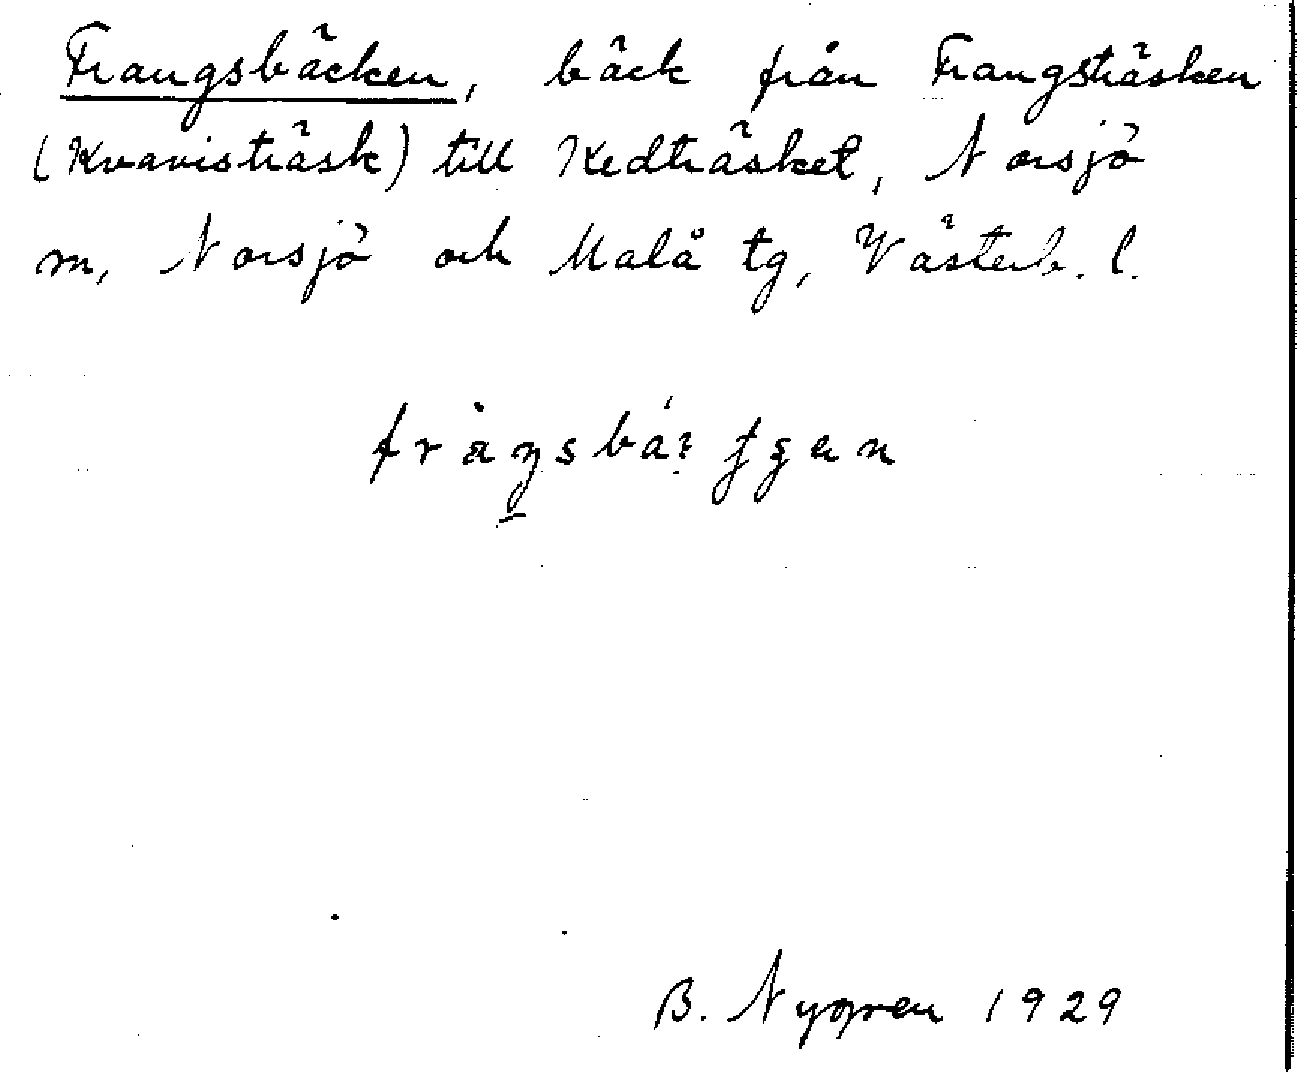 Frangsbäcken, bäck från Frangsträsken
(Kvavisträsk) till Kedträsket, Norsjö
m, Norsjö och Malå tg, Västerb. l.
B. Nygren 1929